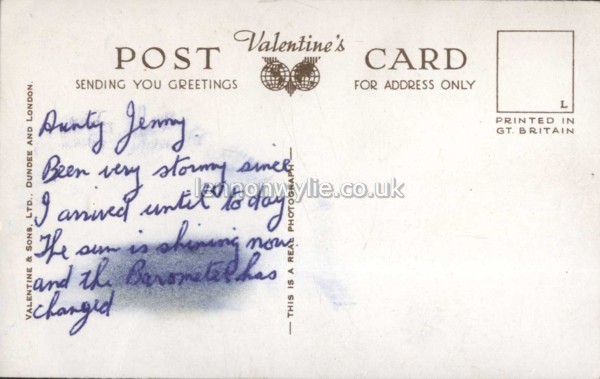 Valentine's
POST CARD
SENDING YOU GREETINGS
FOR ADDRESS ONLY
L
PRINTED IN
GT. BRITAIN
VALENTINE & SONS, LTD., DUNDEE AND LONDON.
Aunty Jenny
Been very stormy since
I arrived until to day
The sun is shining now
and the Barometer has
changed
— THIS IS A REAL PHOTOGRAPH —
lennonwylie.co.uk